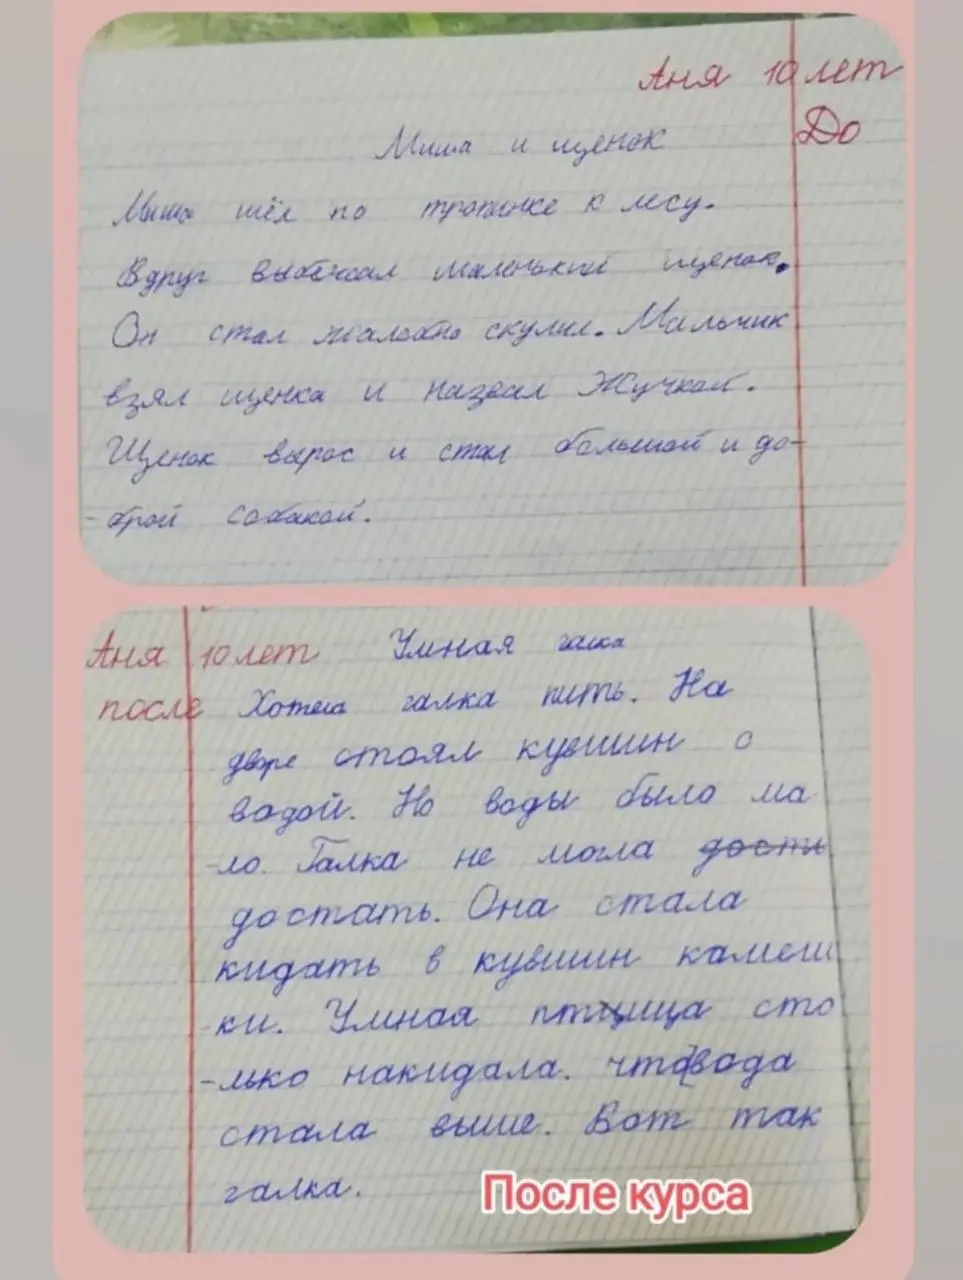 Аня 10 лет
До
Миша и щенок
Миша шёл по тропинке к лесу.
Вдруг выбежал маленький щенок.
Он стал жалобно скулил. Мальчик
взял щенка и назвал Жучкой.
Щенок вырос и стал большой и до-
-брой собакой.
Аня 10 лет
после
Умная галка
Хотела галка пить. На
дворе стоял кувшин с
водой. Но воды было ма
-ло. Галка не могла дость
достать. Она стала
кидать в кувшин камеш
-ки. Умная птица сто
-лько накидала. что вода
стала выше. Вот так
галка.
После курса